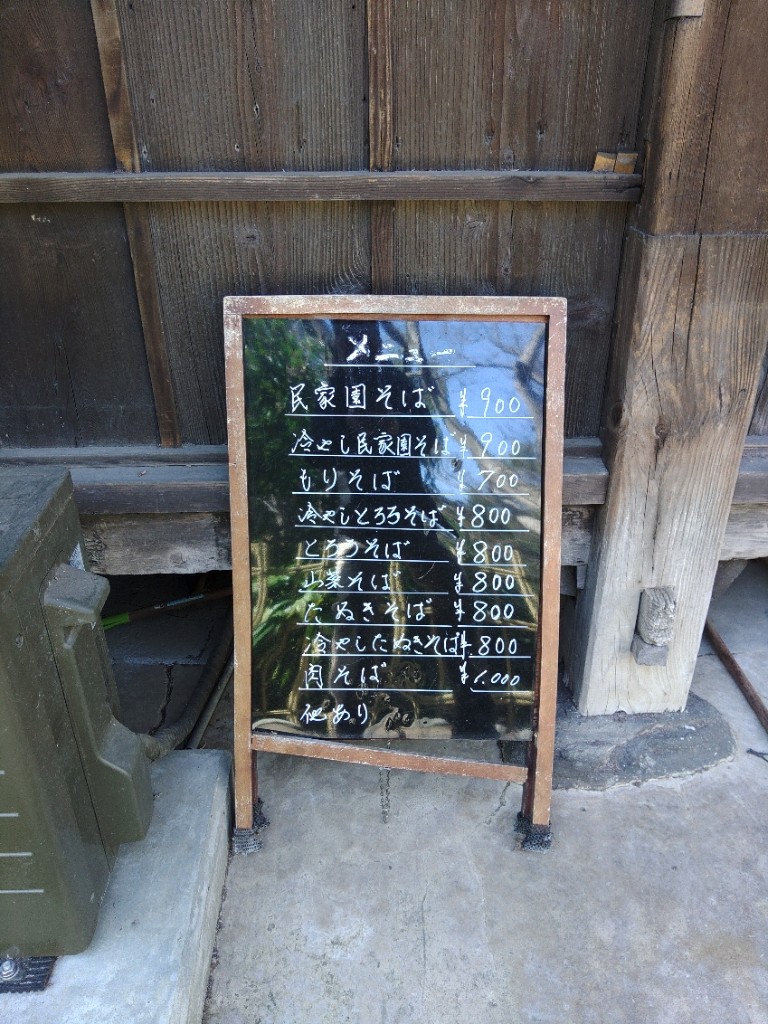 メニュー
民家園そば ¥900
冷やし民家園そば ¥900
もりそば ¥700
冷やしとろろそば ¥800
とろろそば ¥800
山菜そば ¥800
たぬきそば ¥800
冷やしたぬきそば ¥800
肉そば ¥1.000
他あり